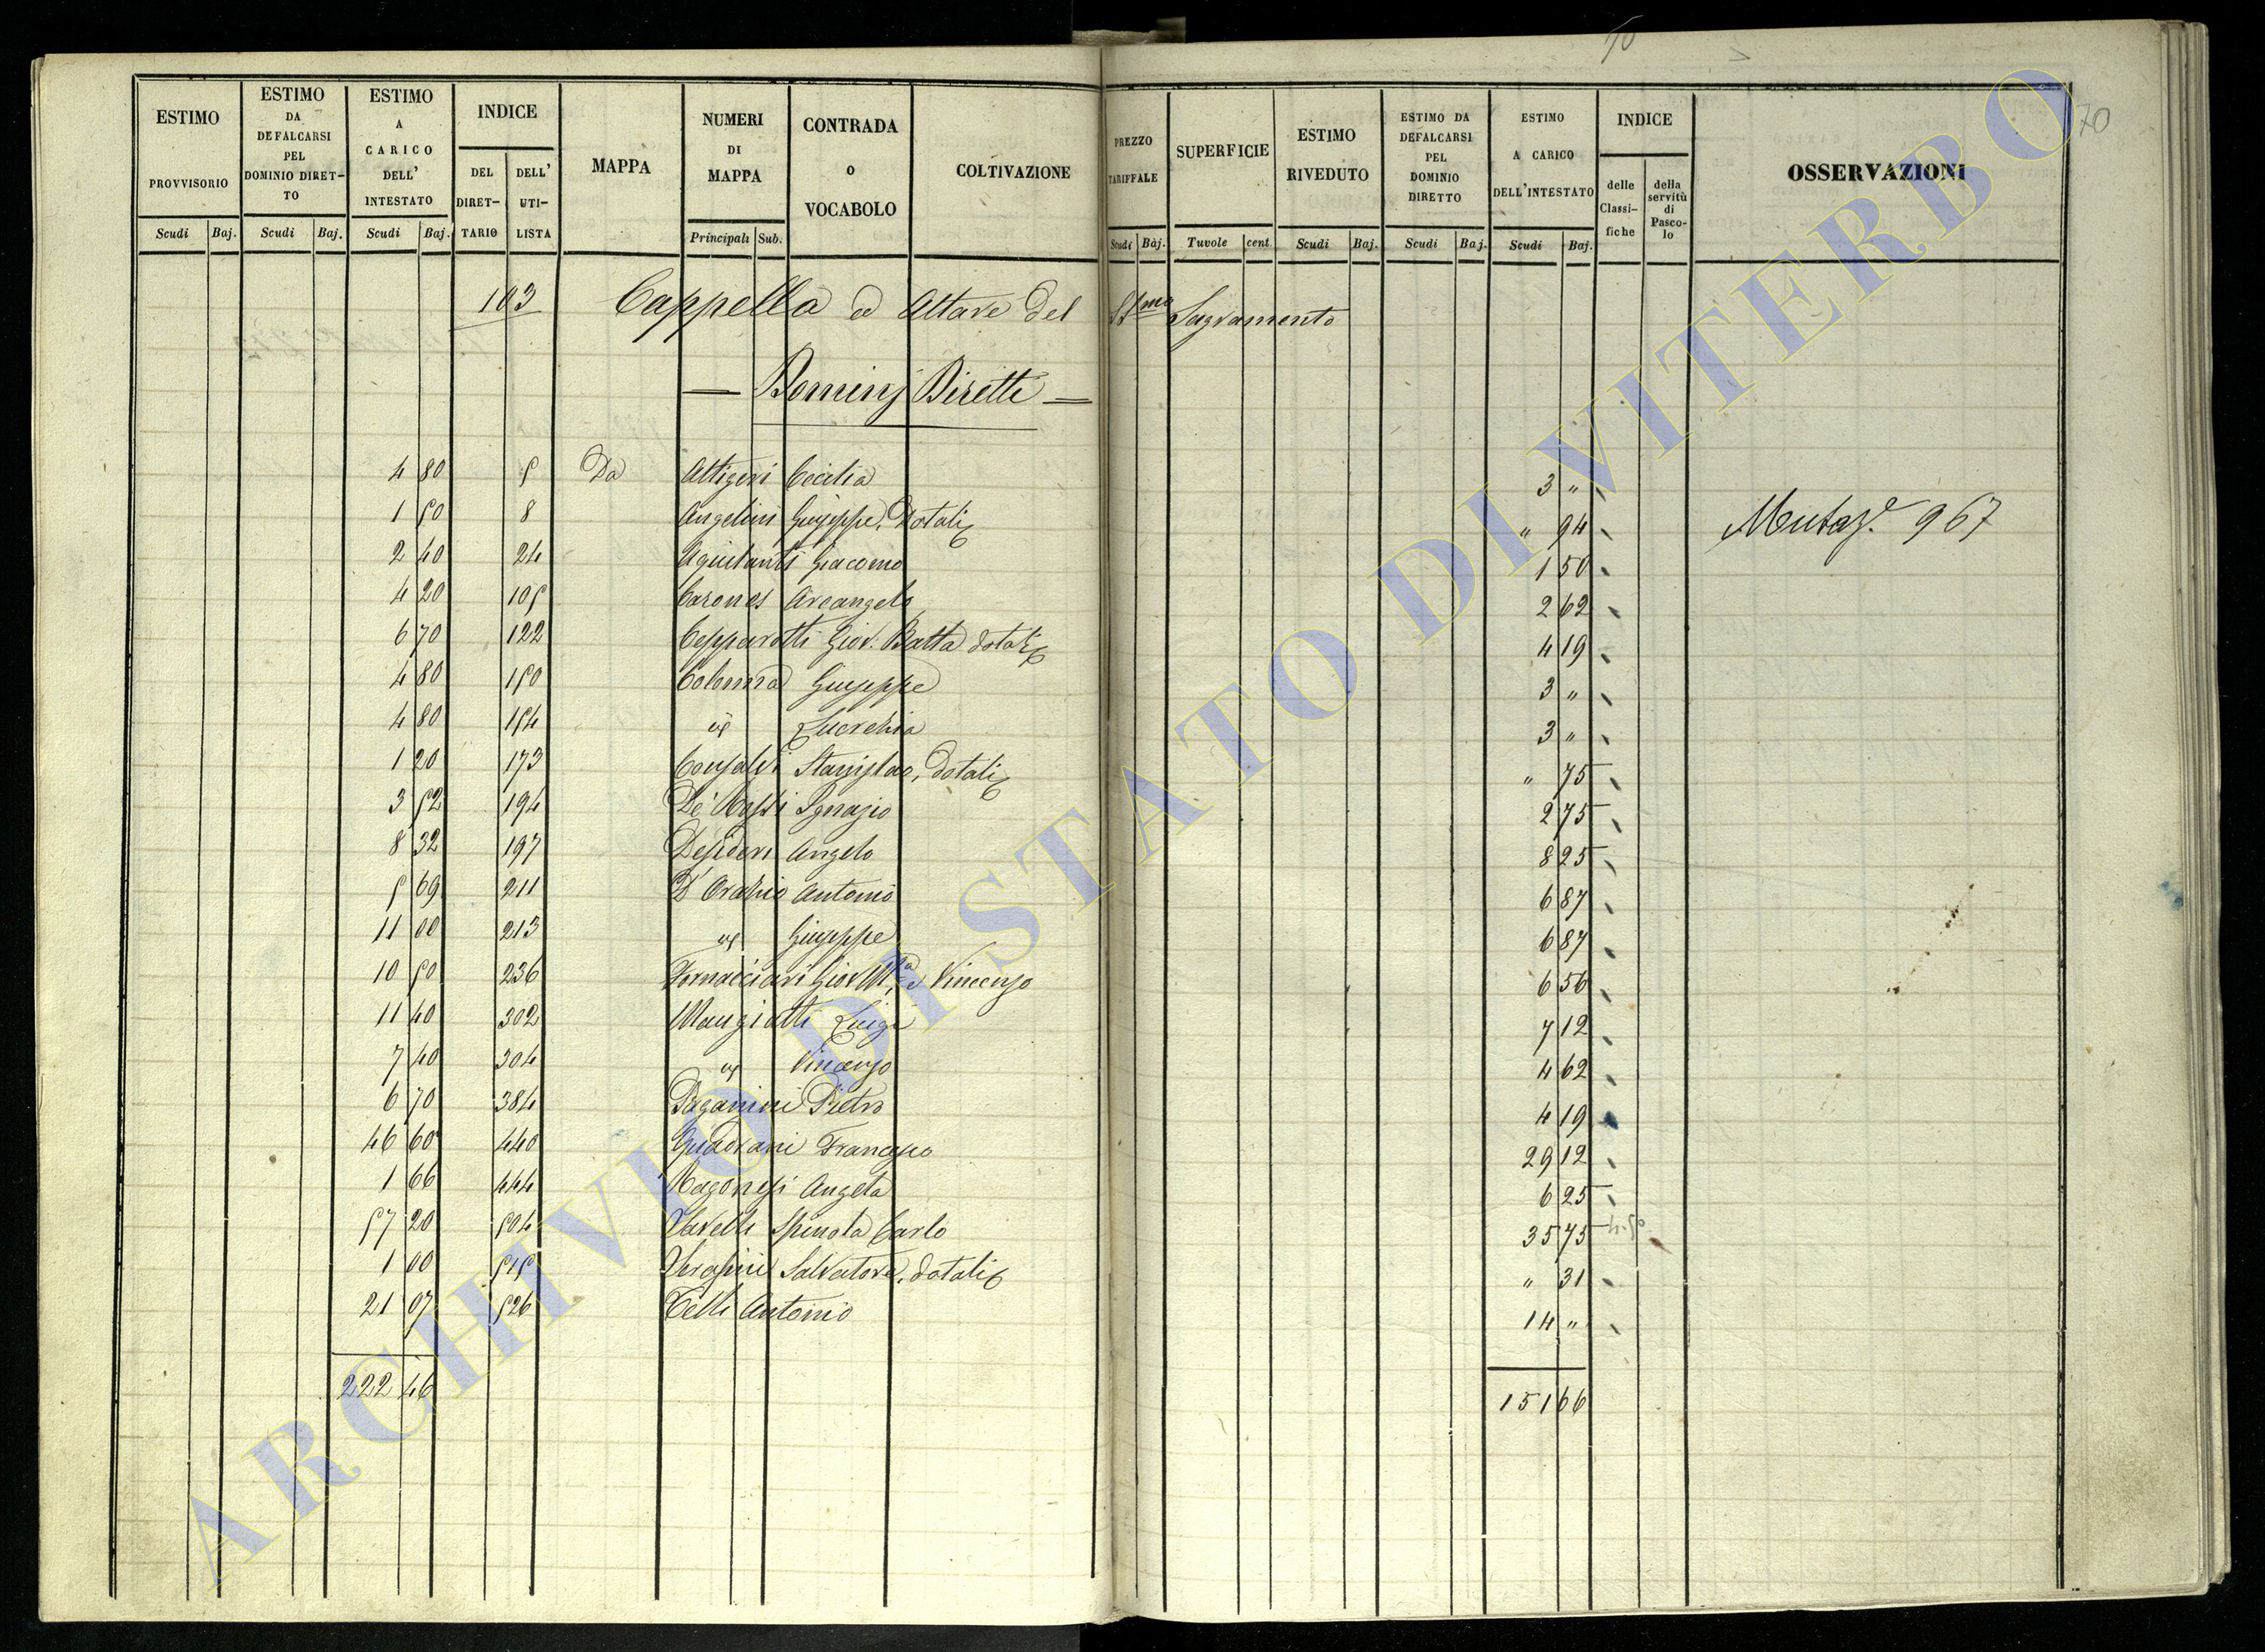 70
70
ESTIMO PROVVISORIO
ESTIMO DA DEFALCARSI PEL DOMINIO DIRET-TO
ESTIMO A CARICO DELL' INTESTATO
INDICE
DEL DIRET-TARIO
DELL' UTI-LISTA
MAPPA
NUMERI DI MAPPA
CONTRADA o VOCABOLO
COLTIVAZIONE
PREZZO TARIFFALE
SUPERFICIE
ESTIMO RIVEDUTO
ESTIMO DA DEFALCARSI PEL DOMINIO DIRETTO
ESTIMO A CARICO DELL'INTESTATO
INDICE
delle Classi-fiche
della servitù di Pasco-lo
OSSERVAZIONI
Scudi Baj. Scudi Baj. Scudi Baj. Principali Sub. Scudi Baj. Tuvole cent. Scudi Baj. Scudi Baj. Scudi Baj.
103 Cappella a Altare del SSmo Sagramento
— Dominj Diretti —
4 80 5 Da Altigeri Cecilia 3 "
1 50 8 Angelini Giuseppe, Dotali " 94 Mutaz.e 967
2 40 24 Aquilanti Giacomo 1 50
4 20 105 Carones Arcangelo 2 62
6 70 122 Ceppavotti Giov. Batta dotali 4 19
4 80 150 Colonna Giuseppe 3 "
4 80 154 id Lucrezia 3 "
1 20 173 Consalvi Stanislao, dotali " 75
3 52 194 De' Rossi Ignazio 2 75
8 32 197 Desideri Angelo 8 25
5 69 211 D'Orazio Antonio 6 87
11 00 213 id Giuseppe 6 87
10 50 236 Fornacciari Giov M.a e Vincenzo 6 56
11 40 302 Mangiotti Luigi 7 12
7 40 304 id Vincenzo 4 62
6 70 384 Paganini Pietro 4 19
46 60 440 Quadrani Francesco 29 12
1 66 444 Ragonesi Angela 6 25
57 20 504 Savelli Spinola Carlo 35 75
1 00 515 Serafini Salvatore, dotali " 31
21 07 526 Telli Antonio 14 "
222 46 151 66
ARCHIVIO DI STATO DI VITERBO